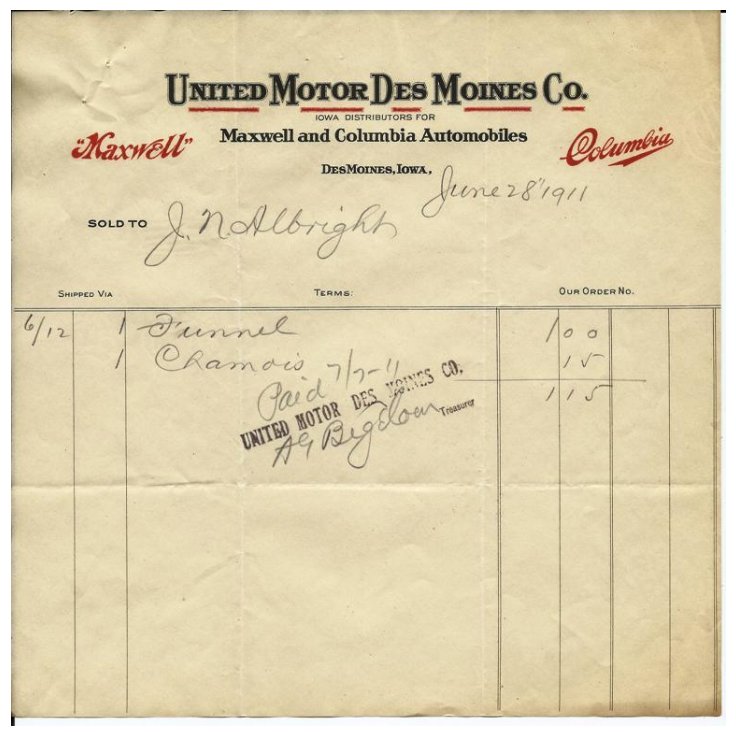 UNITED MOTOR DES MOINES CO.
IOWA DISTRIBUTORS FOR
Maxwell and Columbia Automobiles
"Maxwell"
Columbia
DESMOINES, IOWA,
June 28" 1911
SOLD TO J. N. Albright
SHIPPED VIA TERMS: OUR ORDER NO.
6/12 1 Funnel 1 00
1 Chamois 15
1 15
Paid 7/7-11
UNITED MOTOR DES MOINES CO.
AG Bigelow Treasurer